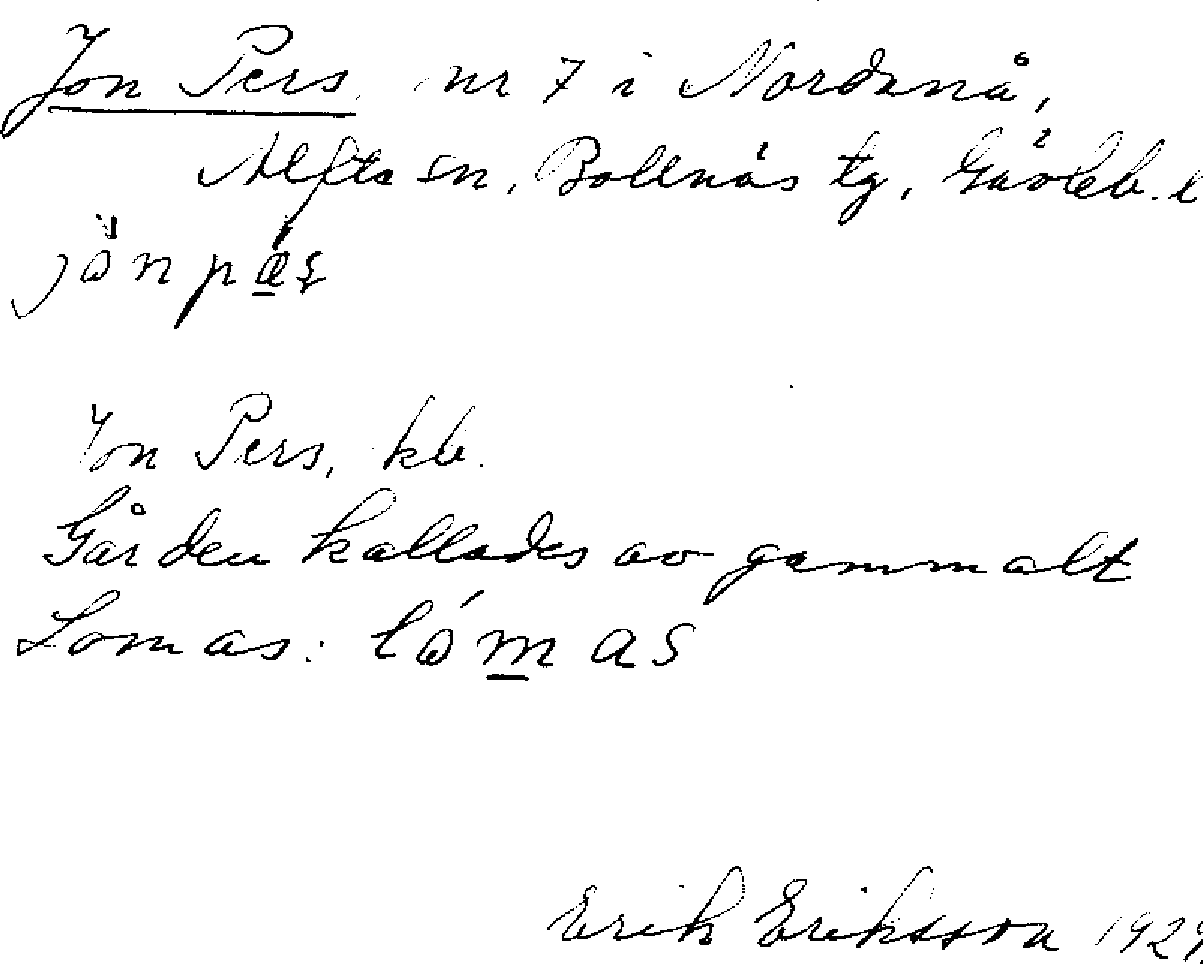 Jon Pers nr 7 i Nordanå,
Alfta sn, Bollnäs tg, Gävleb. l
Jon Pers, kb.
Gården kallades av gammalt
Lomas: lómas
Erik Eriksson 1929